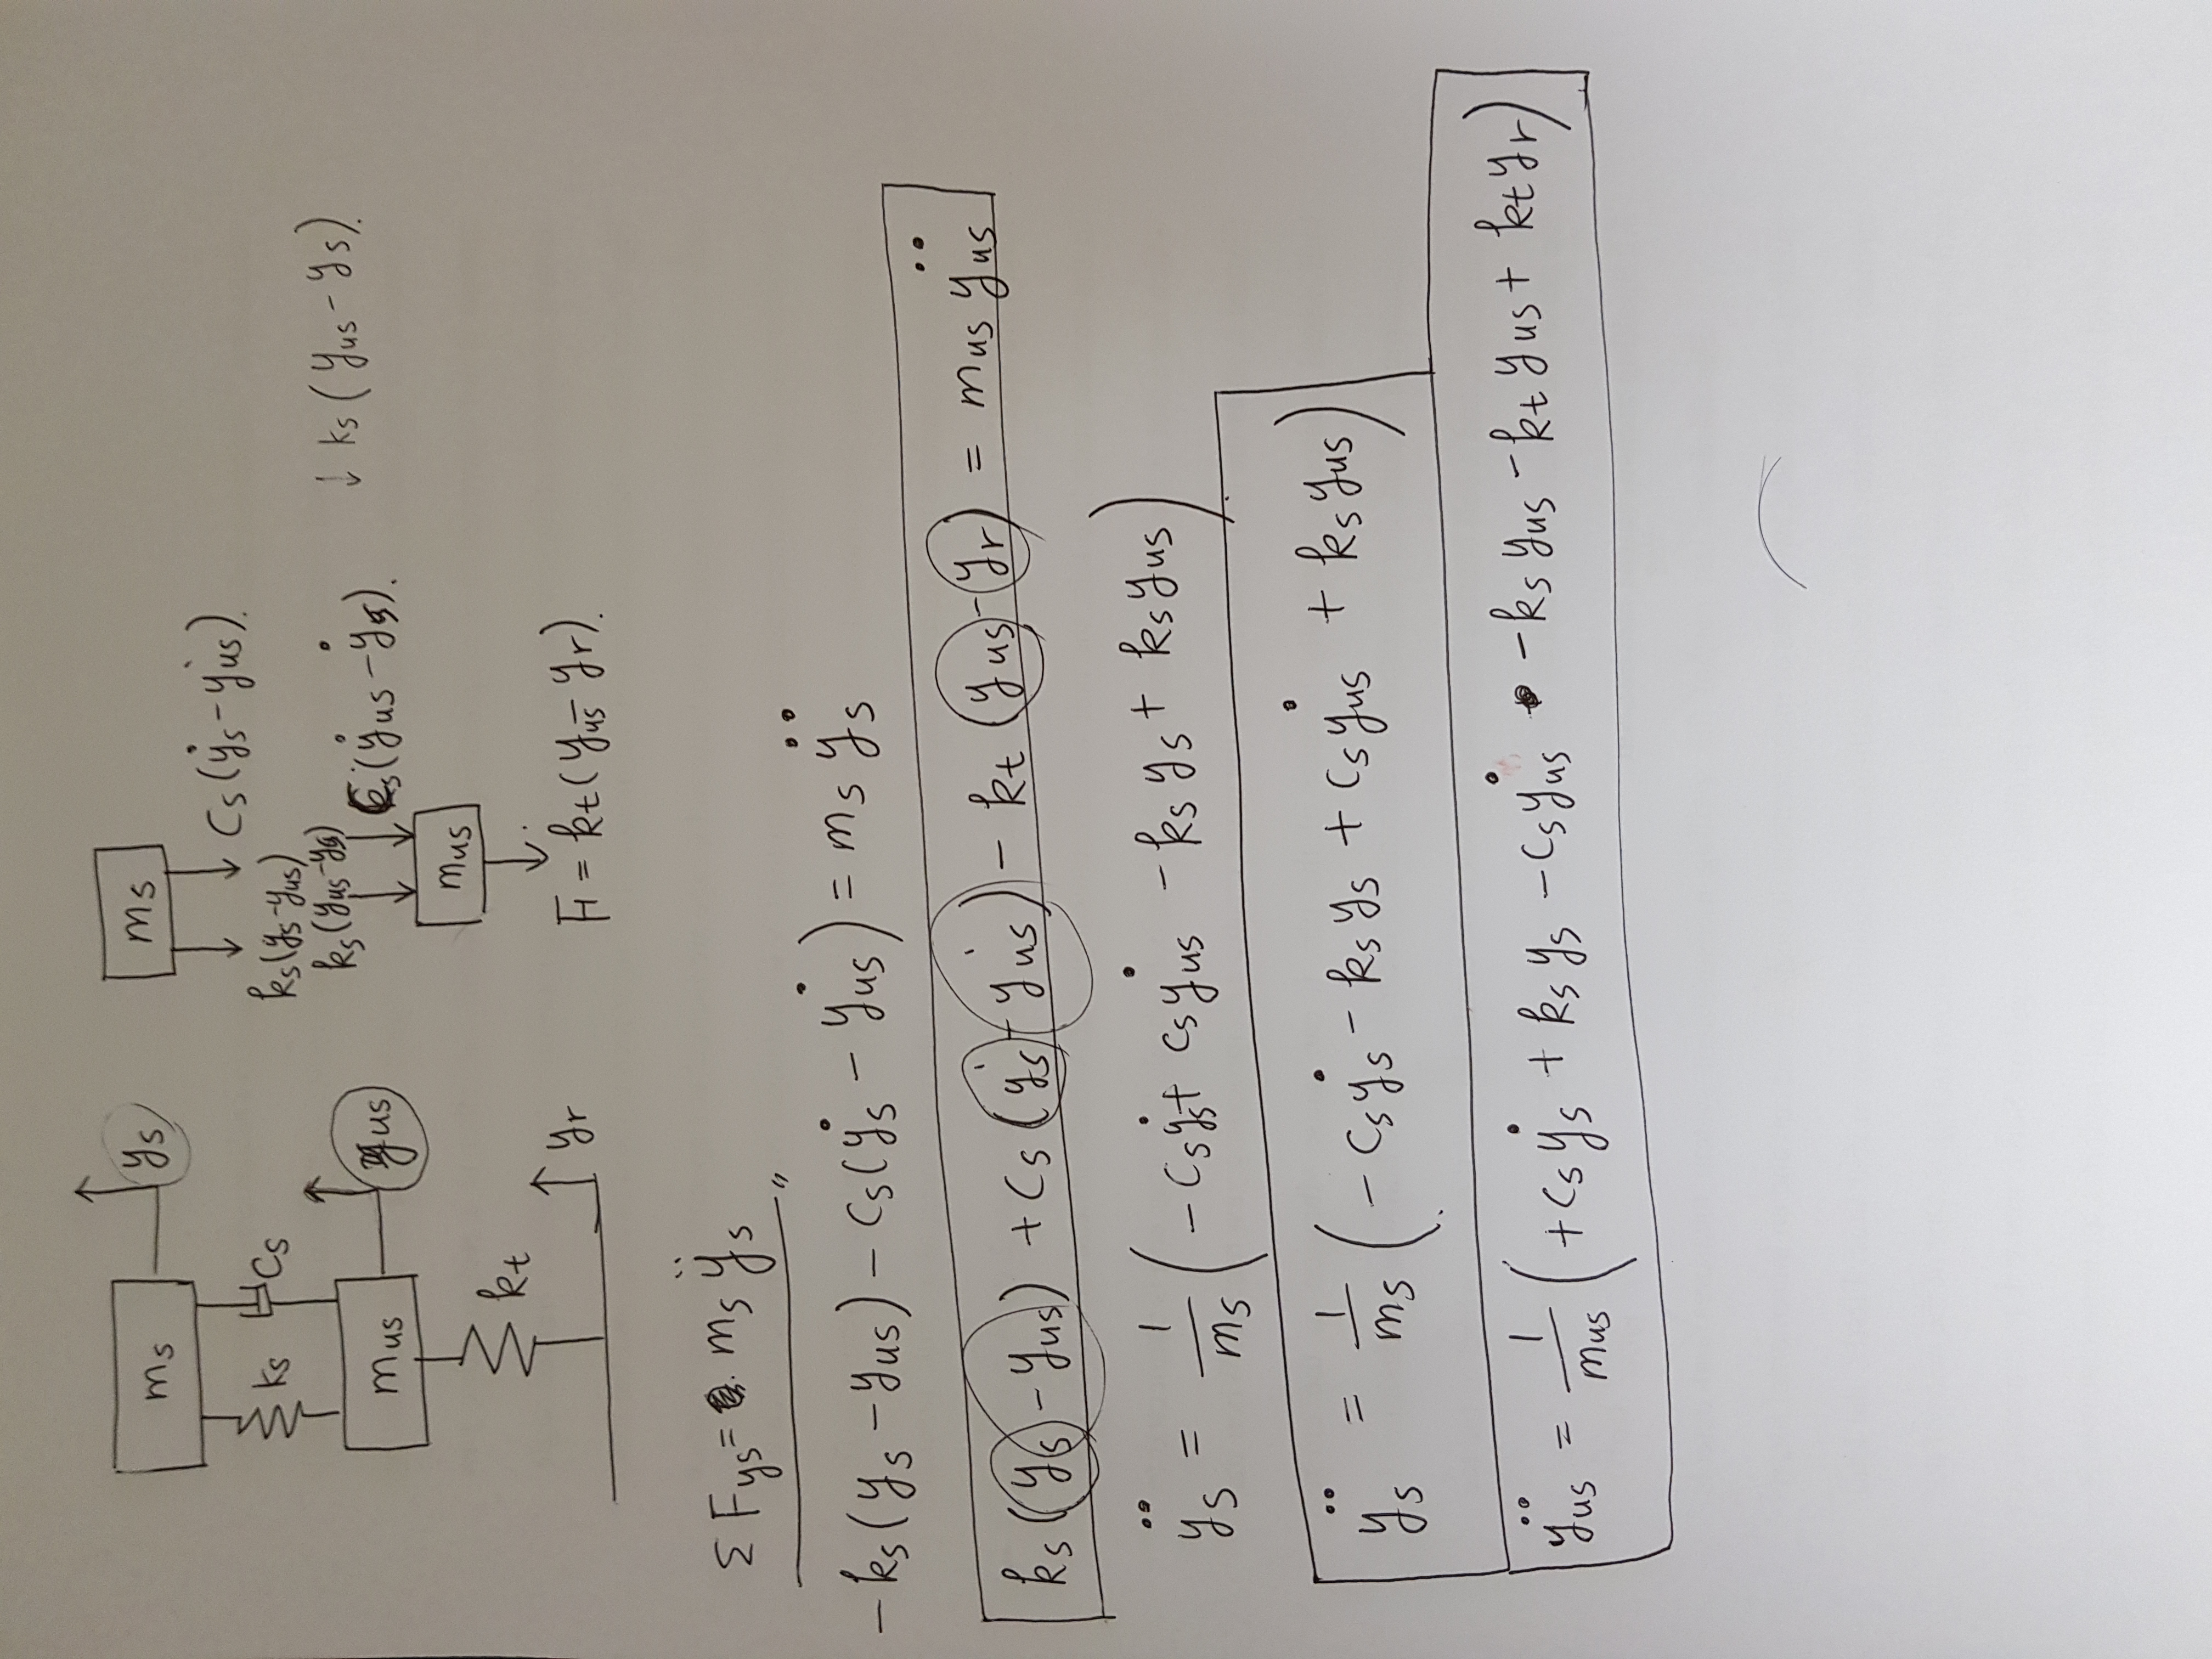 mₛ
yₛ
kₛ
cₛ
mᵤₛ
yᵤₛ
kₜ
yᵣ
mₛ
cₛ(ẏₛ-ẏᵤₛ).
kₛ(yₛ-yᵤₛ)
kₛ(yᵤₛ-yₛ)
cₛ(ẏᵤₛ-ẏₛ).
↓ kₛ(yᵤₛ-yₛ).
mᵤₛ
F = kₜ(yᵤₛ-yᵣ).
ΣF_yₛ = mₛÿₛ
-kₛ(yₛ-yᵤₛ)-cₛ(ẏₛ-ẏᵤₛ) = mₛÿₛ
kₛ(yₛ-yᵤₛ)+cₛ(ẏₛ-ẏᵤₛ)-kₜ(yᵤₛ-yᵣ) = mᵤₛÿᵤₛ
ÿₛ = 1/mₛ (-cₛẏₛ+cₛẏᵤₛ-kₛyₛ+kₛyᵤₛ)
ÿₛ = 1/mₛ (-cₛẏₛ-kₛyₛ+cₛẏᵤₛ+kₛyᵤₛ)
ÿᵤₛ = 1/mᵤₛ (+cₛẏₛ+kₛyₛ-cₛẏᵤₛ-kₛyᵤₛ-kₜyᵤₛ+kₜyᵣ)